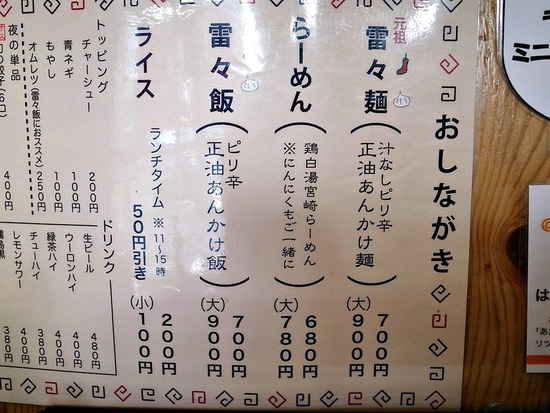 おしながき
元祖
雷々麺
汁なしピリ辛
正油あんかけ麺
700円
(大)900円
らーめん
鶏白湯宮崎らーめん
※にんにくもご一緒に
680円
(大)780円
雷々飯
ピリ辛
正油あんかけ飯
700円
(大)900円
ライス
ランチタイム ※11〜15時
50円引き
200円
(小)100円
トッピング
チャーシュー 200円
青ネギ 100円
もやし 100円
オムレツ(雷々飯におススメ) 250円
夜の単品
400円
ドリンク
生ビール 480円
ウーロンハイ 400円
緑茶ハイ 400円
チューハイ 350円
レモンサワー 380円
ミニ
は